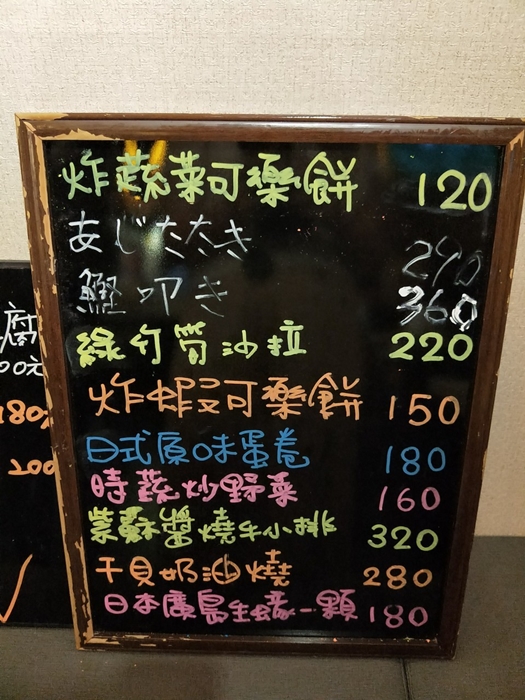 炸蔬菜可樂餅 120
あじたたき 290
鰹叩き 360
綠竹筍沙拉 220
炸蝦可樂餅 150
日式原味蛋卷 180
時蔬炒野菜 160
紫蘇醬燒牛小排 320
干貝奶油燒 280
日本廣島生蠔一顆 180
腐
00元
180元
200